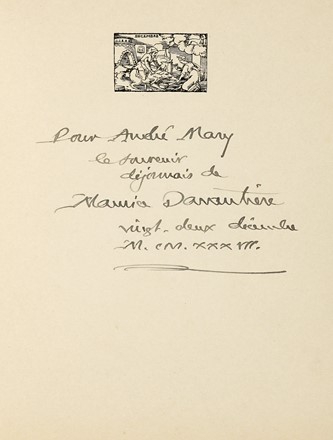 Pour André Mary
le souvenir
déjormais de
Maurice Darantière
vingt-deux décembre
M. CM. XXX